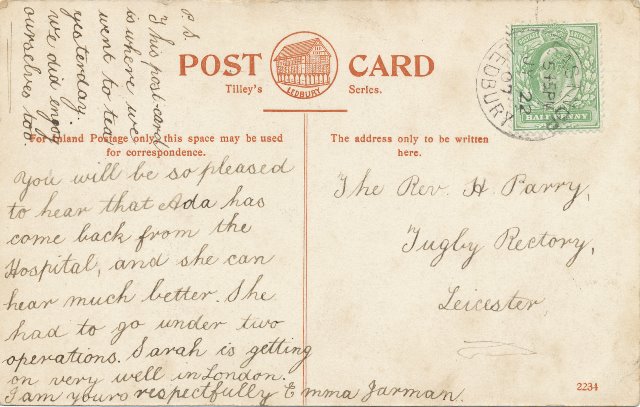 P.S
This post-card
is where we
went to tea
yesterday.
we did enjoy
ourselves too.
POST CARD
LEDBURY
Tilley's Series.
LEDBURY
5 45 PM
22
07
HALFPENNY
For Inland Postage only, this space may be used
for correspondence.
The address only to be written
here.
You will be so pleased
to hear that Ada has
come back from the
Hospital, and she can
hear much better. She
had to go under two
operations. Sarah is getting
on very well in London.
I am yours respectfully Emma Jarman.
The Rev. H. Parry,
Tugby Rectory,
Leicester.
2234